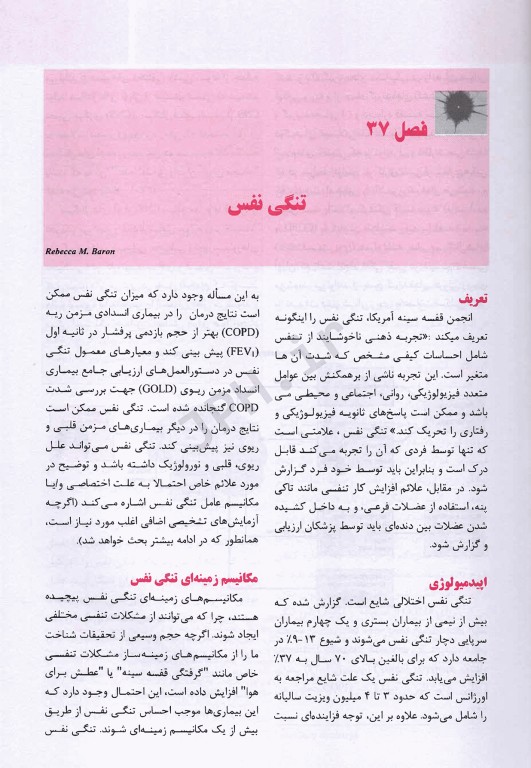 فصل ۳۷
تنگی نفس
Rebecca M. Baron
تعریف
انجمن قفسه سینه آمریکا، تنگی نفس را اینگونه
تعریف میکند :«تجربه ذهنی ناخوشایند از تنفس
شامل احساسات کیفی مشخص که شدت آن ها
متغیر است. این تجربه ناشی از برهمکنش بین عوامل
متعدد فیزیولوژیکی، روانی، اجتماعی و محیطی می
باشد و ممکن است پاسخ‌های ثانویه فیزیولوژیکی و
رفتاری را تحریک کند.» تنگی نفس ، علامتی است
که تنها توسط فردی که آن را تجربه می‌کند قابل
درک است و بنابراین باید توسط خود فرد گزارش
شود. در مقابل، علائم افزایش کار تنفسی مانند تاکی
پنه، استفاده از عضلات فرعی، و به داخل کشیده
شدن عضلات بین دنده‌ای باید توسط پزشکان ارزیابی
و گزارش شود.
اپیدمیولوژی
تنگی نفس اختلالی شایع است. گزارش شده که
بیش از نیمی از بیماران بستری و یک چهارم بیماران
سرپایی دچار تنگی نفس می‌شوند و شیوع ۱۳-۹٪ در
جامعه دارد که برای بالغین بالای ۷۰ سال به ۳۷٪
افزایش می‌یابد. تنگی نفس یک علت شایع مراجعه به
اورژانس است که حدود ۳ تا ۴ میلیون ویزیت سالیانه
را شامل می‌شود. علاوه بر این، توجه فزاینده‌ای نسبت
به این مسأله وجود دارد که میزان تنگی نفس ممکن
است نتایج درمان را در بیماری انسدادی مزمن ریه
(COPD) بهتر از حجم بازدمی پرفشار در ثانیه اول
(FEV₁) پیش بینی کند و معیارهای معمول تنگی
نفس در دستورالعمل‌های ارزیابی جامع بیماری
انسداد مزمن ریوی (GOLD) جهت بررسی شدت
COPD گنجانده شده است. تنگی نفس ممکن است
نتایج درمان را در دیگر بیماری‌های مزمن قلبی و
ریوی نیز پیش‌بینی کند. تنگی نفس می‌تواند علل
ریوی، قلبی و نورولوژیک داشته باشد و توضیح در
مورد علائم خاص احتمالا به علت اختصاصی و/یا
مکانیسم عامل تنگی نفس اشاره می‌کند (اگرچه
آزمایش‌های تشخیصی اضافی اغلب مورد نیاز است،
همانطور که در ادامه بیشتر بحث خواهد شد).
مکانیسم زمینه‌ای تنگی نفس
مکانیسم‌های زمینه‌ای تنگی نفس پیچیده
هستند، چرا که می‌توانند از مشکلات تنفسی مختلفی
ایجاد شوند. اگرچه حجم وسیعی از تحقیقات شناخت
ما را از مکانیسم‌های زمینه‌ساز مشکلات تنفسی
خاص مانند "گرفتگی قفسه سینه" یا "عطش برای
هوا" افزایش داده است، این احتمال وجود دارد که
این بیماری‌ها موجب احساس تنگی نفس از طریق
بیش از یک مکانیسم زمینه‌ای شوند. تنگی نفس